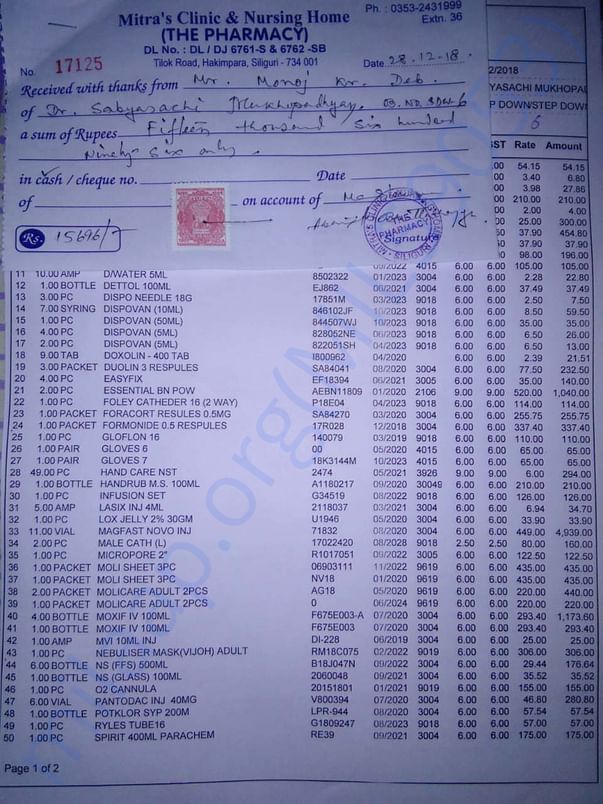 Ph. : 0353-2431999
Extn. 36
Mitra's Clinic & Nursing Home
(THE PHARMACY)
DL No. : DL / DJ 6761-S & 6762 -SB
Tilok Road, Hakimpara, Siliguri - 734 001
No. 17125 Date 28.12.18.
Received with thanks from Mr. Monoj Kr. Deb.
of Dr. Sabyasachi Mukhopadhyay.
a sum of Rupees Fifteen thousand Six hundred
Ninety Six only.
in cash / cheque no. Date
of on account of
Rs. 15696/-
THE PHARMACY
Signature
2/2018
YASACHI MUKHOPAL
P DOWN/STEP DOWN
6
ST Rate Amount
54.15 54.15
3.40 6.80
3.98 27.86
210.00 210.00
2.00 4.00
25.00 300.00
37.90 454.80
37.90 37.90
98.00 196.00
4015 6.00 6.00 105.00 105.00
11 10.00 AMP D/WATER 5ML 8502322 01/2023 3004 6.00 6.00 2.28 22.80
12 1.00 BOTTLE DETTOL 100ML EJ862 06/2021 3004 6.00 6.00 37.49 37.49
13 3.00 PC DISPO NEEDLE 18G 17851M 03/2023 9018 6.00 6.00 2.50 7.50
14 7.00 SYRING DISPOVAN (10ML) 846102JF 10/2023 9018 6.00 6.00 8.50 59.50
15 1.00 PC DISPOVAN (50ML) 844507WJ 10/2023 9018 6.00 6.00 35.00 35.00
16 4.00 PC DISPOVAN (5ML) 828052NE 06/2023 9018 6.00 6.00 6.50 26.00
17 2.00 PC DISPOVAN (5ML) 822051SH 04/2023 9018 6.00 6.00 6.50 13.00
18 9.00 TAB DOXOLIN - 400 TAB I800962 04/2020 6.00 6.00 2.39 21.51
19 3.00 PACKET DUOLIN 3 RESPULES SA84041 08/2020 3004 6.00 6.00 77.50 232.50
20 4.00 PC EASYFIX EF18394 06/2021 3005 6.00 6.00 35.00 140.00
21 2.00 PC ESSENTIAL BN POW AEBN11809 01/2020 2106 9.00 9.00 520.00 1,040.00
22 1.00 PC FOLEY CATHEDER 16 (2 WAY) P18E04 04/2023 9018 6.00 6.00 114.00 114.00
23 1.00 PACKET FORACORT RESULES 0.5MG SA84270 03/2020 3004 6.00 6.00 255.75 255.75
24 1.00 PACKET FORMONIDE 0.5 RESPULES 17R028 12/2018 3004 6.00 6.00 337.40 337.40
25 1.00 PC GLOFLON 16 140079 03/2019 9018 6.00 6.00 110.00 110.00
26 1.00 PAIR GLOVES 6 00 05/2020 4015 6.00 6.00 65.00 65.00
27 1.00 PAIR GLOVES 7 18K3144M 10/2023 4015 6.00 6.00 65.00 65.00
28 49.00 PC HAND CARE NST 2474 05/2021 3926 9.00 9.00 6.00 294.00
29 1.00 BOTTLE HANDRUB M.S. 100ML A1180217 09/2020 30049 6.00 6.00 210.00 210.00
30 1.00 PC INFUSION SET G34519 08/2022 9018 6.00 6.00 126.00 126.00
31 5.00 AMP LASIX INJ 4ML 2118037 03/2021 3004 6.00 6.00 6.94 34.70
32 1.00 PC LOX JELLY 2% 30GM U1946 05/2020 3004 6.00 6.00 33.90 33.90
33 11.00 VIAL MAGFAST NOVO INJ 71832 08/2020 3004 6.00 6.00 449.00 4,939.00
34 2.00 PC MALE CATH (L) 17022420 08/2028 9018 2.50 2.50 80.00 160.00
35 1.00 PC MICROPORE 2" R1017051 09/2022 3005 6.00 6.00 122.50 122.50
36 1.00 PACKET MOLI SHEET 3PC 06903111 11/2022 9619 6.00 6.00 435.00 435.00
37 1.00 PACKET MOLI SHEET 3PC NV18 01/2021 9619 6.00 6.00 435.00 435.00
38 2.00 PACKET MOLICARE ADULT 2PCS AG18 05/2020 9619 6.00 6.00 220.00 440.00
39 1.00 PACKET MOLICARE ADULT 2PCS 0 06/2024 9619 6.00 6.00 220.00 220.00
40 4.00 BOTTLE MOXIF IV 100ML F675E003-A 07/2020 3004 6.00 6.00 293.40 1,173.60
41 1.00 BOTTLE MOXIF IV 100ML F675E003 07/2020 3004 6.00 6.00 293.40 293.40
42 1.00 AMP MVI 10ML INJ DI-228 06/2019 3004 6.00 6.00 25.00 25.00
43 1.00 PC NEBULISER MASK(VIJOH) ADULT RM18C075 02/2022 9019 6.00 6.00 306.00 306.00
44 6.00 BOTTLE NS (FFS) 500ML B18J047N 09/2021 3004 6.00 6.00 29.44 176.64
45 1.00 BOTTLE NS (GLASS) 100ML 2060048 05/2021 3004 6.00 6.00 35.52 35.52
46 1.00 PC O2 CANNULA 20151801 01/2021 9019 6.00 6.00 155.00 155.00
47 6.00 VIAL PANTODAC INJ 40MG V800394 07/2020 3004 6.00 6.00 46.80 280.80
48 1.00 BOTTLE POTKLOR SYP 200M LPR-944 08/2020 3004 6.00 6.00 57.54 57.54
49 1.00 PC RYLES TUBE16 G1809247 08/2023 9018 6.00 6.00 57.00 57.00
50 1.00 PC SPIRIT 400ML PARACHEM RE39 09/2021 3004 6.00 6.00 175.00 175.00
Page 1 of 2